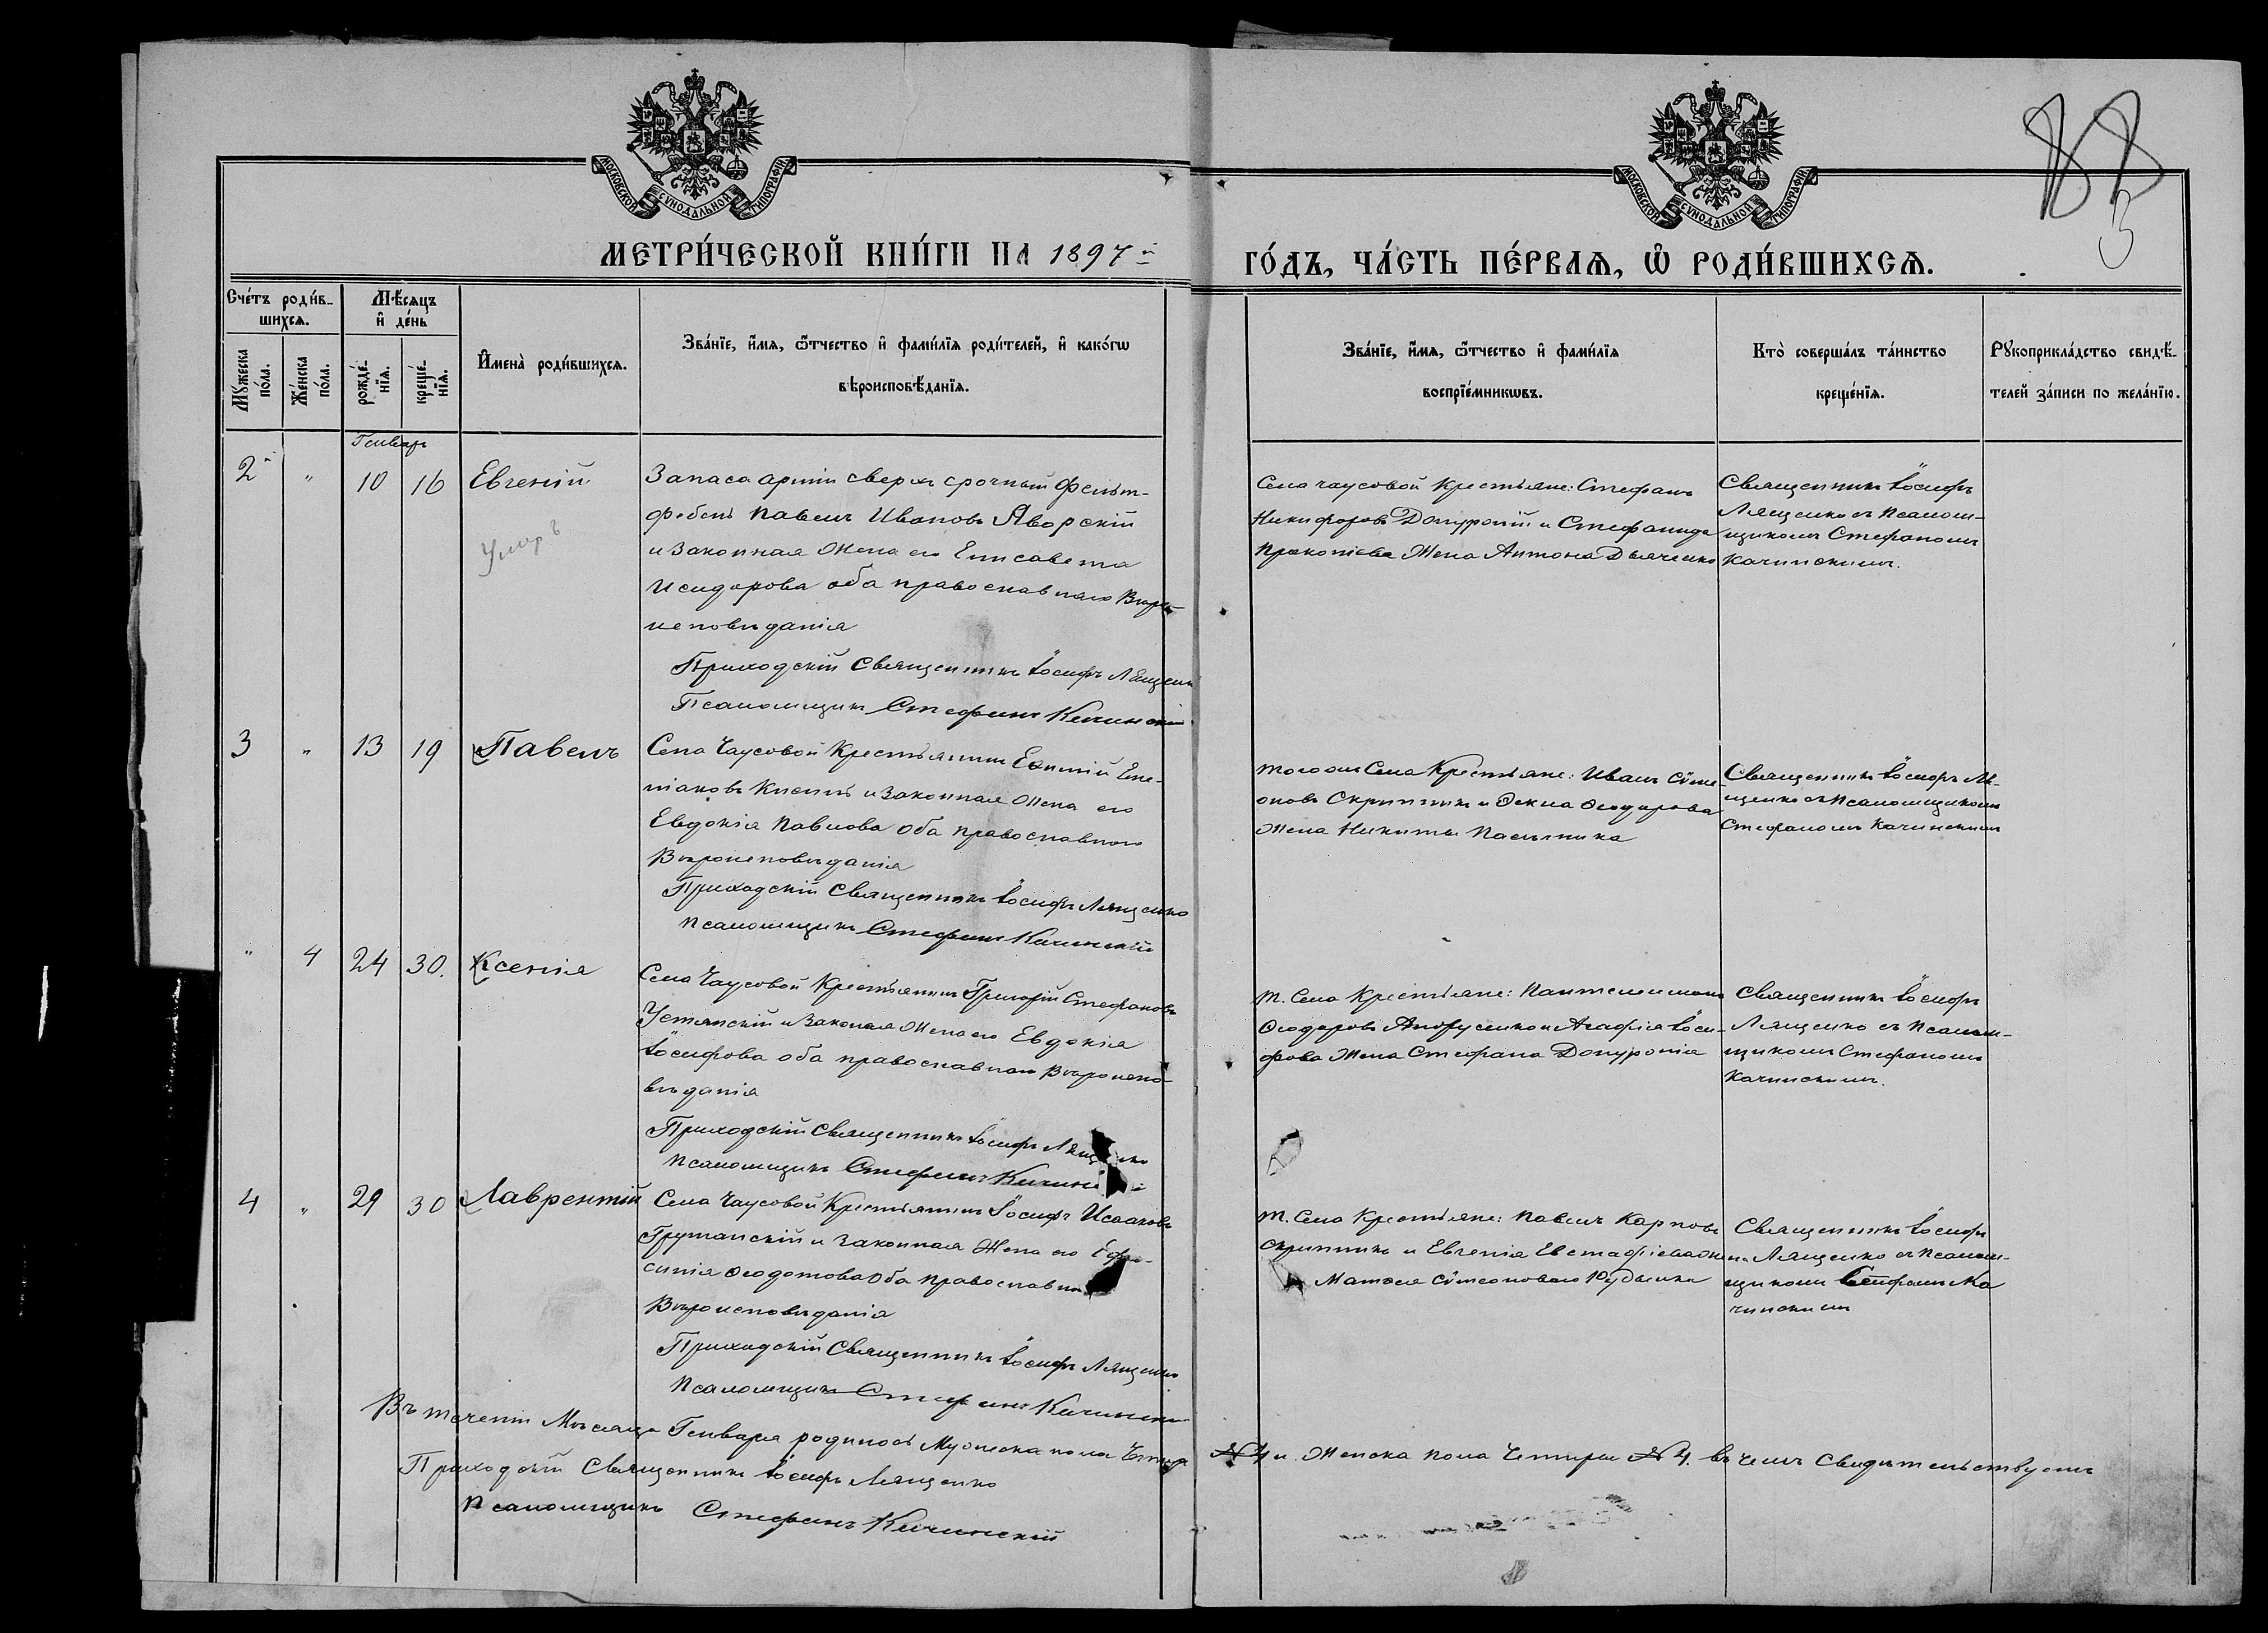 88
3
МОСКОВСКОЙ СѴНОДАЛЬНОЙ ТИПОГРАФІИ
МОСКОВСКОЙ СѴНОДАЛЬНОЙ ТИПОГРАФІИ
МЕТРИ́ЧЕСКОЙ КНИ́ГИ НА 1897 й
ГО́ДЪ, ЧА́СТЬ ПЕ́РВАѦ, Ѽ РОДИ́ВШИХСѦ.
Сче́тъ роди́в-
шихсѧ.
Мѣ́сѧцъ
и҆ де́нь
Мꙋжеска по́ла.
Же́нска по́ла.
рожде́-
нїѧ.
креще́-
нїѧ.
И҆мена̀ роди́вшихсѧ.
Зва́нїе, и҆́мѧ, ѻ҆́тчество и҆ фами́лїѧ роди́телей, и҆ како́гѡ
вѣроисповѣ́данїѧ.
Зва́нїе, и҆́мѧ, ѻ҆́тчество и҆ фами́лїѧ
воспрїе́мникѡвъ.
Кто̀ соверша́лъ та́инство
креще́нїѧ.
Рꙋкоприкла́дство свидѣ́-
телей за́писи по жела́нїю.
Генваръ
2й " 10 16 Евгеній
Умеръ
Запаса арміи сверхъ срочный фельт-
фебель Павелъ Ивановъ Яворскій
и Законная Жена его Елисавета
Исидорова оба православнаго Вѣро-
исповѣданія
Приходскій Священникъ Іосифъ Лященко
Псаломщикъ Стефанъ Качинскій
Села Чаусовой Крестьяне: Стефанъ
Никифоровъ Донуроній и Стефанида
Прокопіева Жена Антона Дьяченко
Священникъ Іосифъ
Лященко съ Псалом-
щикомъ Стефаномъ
Качинскимъ.
3 " 13 19 Павелъ
Села Чаусовой Крестьянинъ
и Законная Жена его
Евдокія Павлова оба православного
Вѣроисповѣданія
Приходскій Священникъ Іосифъ Лященко
Псаломщикъ Стефанъ Качинскій
того же Села Крестьяне: Иванъ Сѵме-
оновъ Скрипникъ и Ѳекла Ѳеодорова
Жена Никиты Пасѣчника
Священникъ Іосифъ Ля-
щенко съ Псаломщикомъ
Стефаномъ Качинскимъ
" 4 24 30. Ксенія
Села Чаусовой Крестьянинъ Григорій Стефановъ
Устянскій и Законая Жена его Евдокія
Іосифова оба православнаго Вѣроиспо-
вѣданія
Приходскій Священникъ Іосифъ Лященко
Псаломщикъ Стефанъ Качинскій
т. Села Крестьяне: Пантелеимонъ
Ѳеодоровъ Андрусенко и Агафія Іоси-
фова Жена Стефана Донуронія
Священникъ Іосифъ
Лященко съ Псалом-
щикомъ Стефаномъ
Качинскимъ.
4 " 29 30 Лаврентій
Села Чаусовой Крестьянинъ Іосифъ Исааковъ
Грутанскій и Законная Жена его Ефро-
синія Ѳеодотова Оба Православна
Вѣроисповѣданія
Приходскій Священникъ Іосифъ Лященко
Псаломщикъ Стефанъ Качинскій
т. Села Крестьяне: Павелъ Карповъ
Скрипникъ и Евгенія Евстафіева жена
Матѳея Сѵмеоноваго Кудыменка
Священникъ Іосифъ
Лященко съ Псалом-
щикомъ Стефаномъ Ка
чинскимъ
Въ теченіи Мѣсяца Генваря родилось Мужеска пола Четыре № 4 и Женска пола Четыре № 4. въ чемъ Свидѣтельствуемъ
Приходскій Священникъ Іосифъ Лященко
Псаломщикъ Стефанъ Качинскій